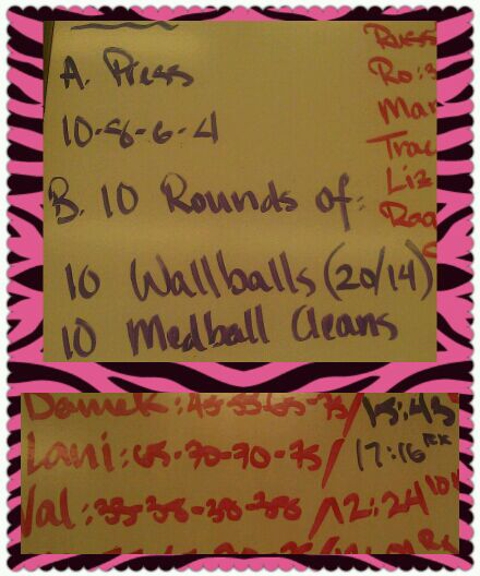 A. Press
10-8-6-4
B. 10 Rounds of:
10 Wallballs (20/14)
10 Medball Cleans
Ro
Mar
Trac
Liz
Damek: 45-55-65-75/15:43
Lani: 65-70-70-75/17:16 RX
Val: 35-38-38-38/12:24